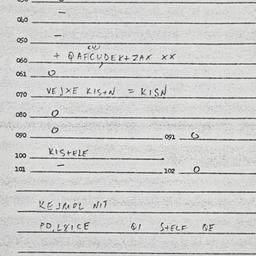 040 —
050 —
060 + QAFCUDEK+ZAX XX
061 0
070 VEJXE KIS+N = KISN
080 0
090 0 091 0
100 KIS+ELE
101 — 102 0
KEJMOL NIT
QI S+ELF QE